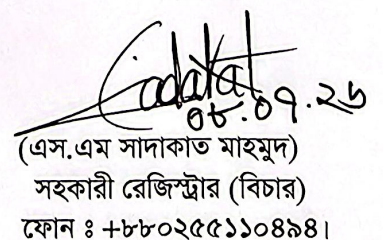 Sadakat
০৮.০৭.২৬
(এস.এম সাদাকাত মাহমুদ)
সহকারী রেজিস্ট্রার (বিচার)
ফোন ঃ +৮৮০২৫৫১১০৪৯৪।